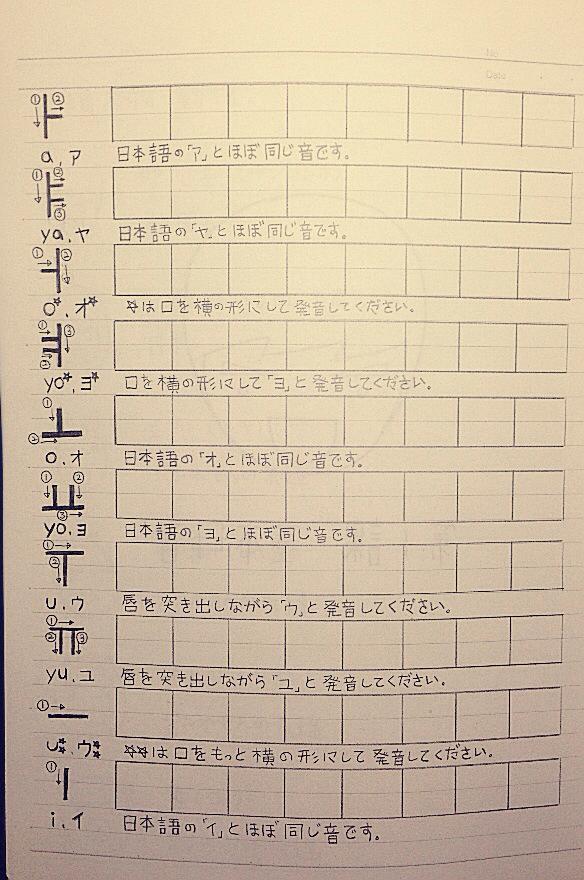 No
Date
① ② ㅏ
a, ア 日本語の「ア」とほぼ同じ音です。
① ② ③ ㅑ
ya, ヤ 日本語の「ヤ」とほぼ同じ音です。
① ② ㅓ
o☆, オ☆ ☆は口を横の形にして発音してください。
① ② ③ ㅕ
yo☆, ヨ☆ 口を横の形にして「ヨ」と発音してください。
① ② ㅗ
o, オ 日本語の「オ」とほぼ同じ音です。
① ② ③ ㅛ
yo, ヨ 日本語の「ヨ」とほぼ同じ音です。
① ② ㅜ
u, ウ 唇を突き出しながら「ウ」と発音してください。
① ② ③ ㅠ
yu, ユ 唇を突き出しながら「ユ」と発音してください。
① ㅡ
u☆☆, ウ☆☆ ☆☆は口をもっと横の形にして発音してください。
① ㅣ
i, イ 日本語の「イ」とほぼ同じ音です。